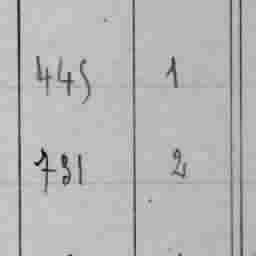 445 1
731 2